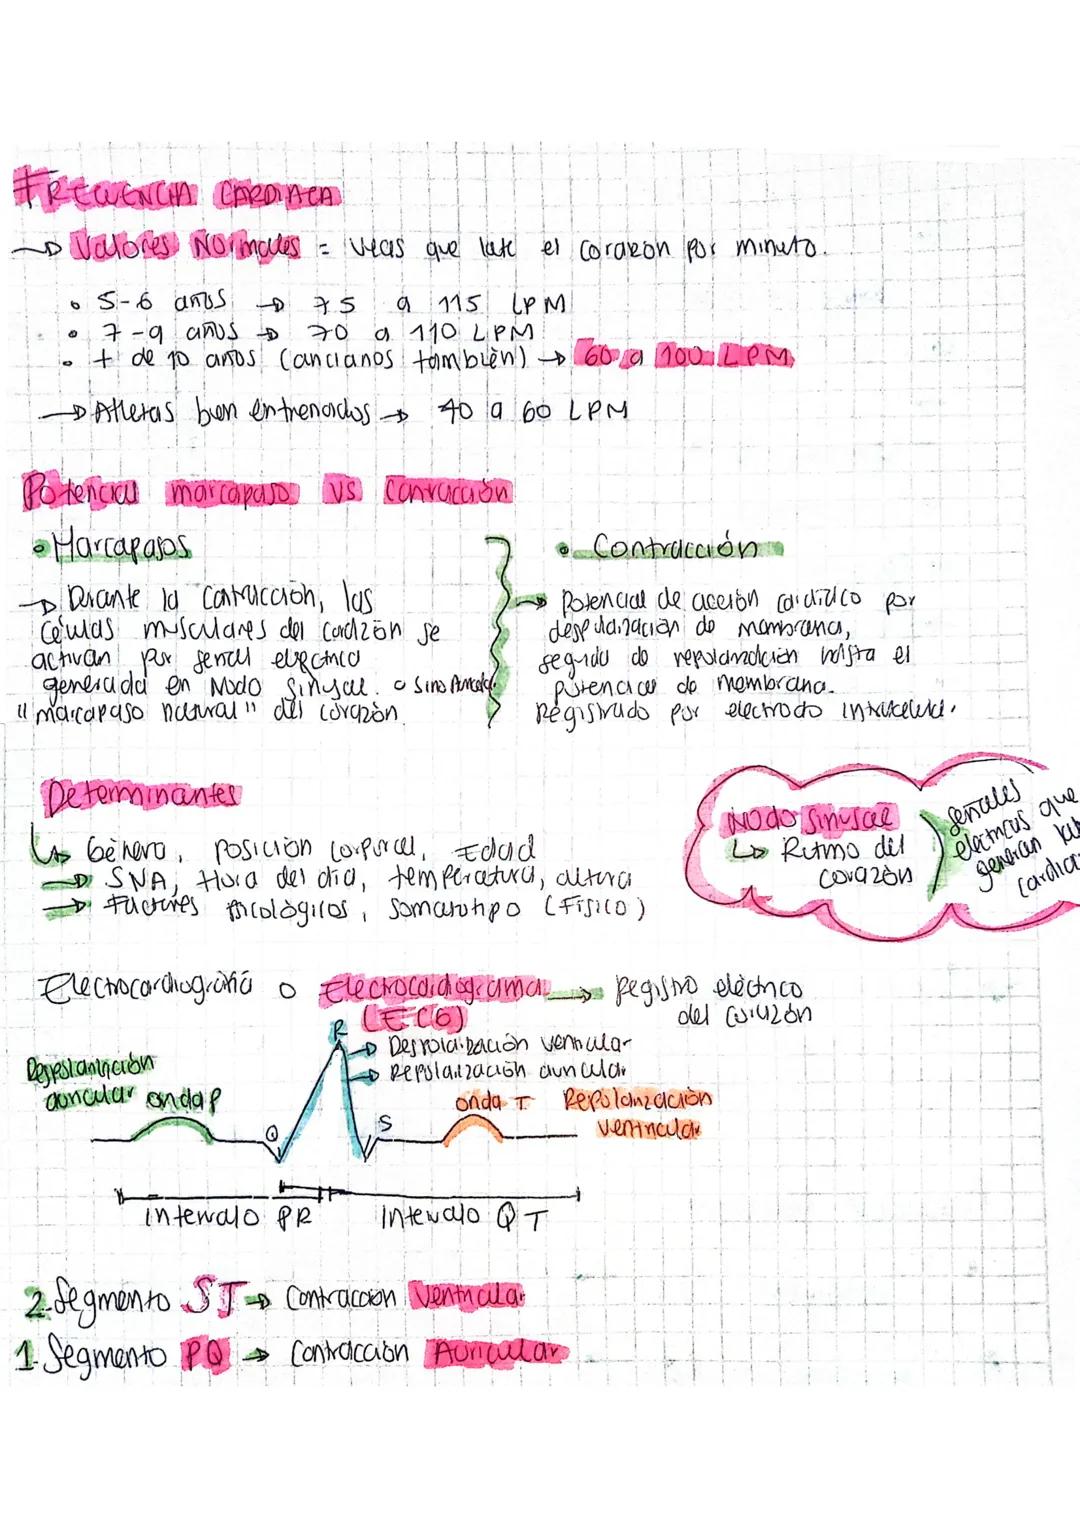 FRECUENCIA CARDIACA
Valores Normales = veces que late el corazon por minuto.
• 5-6 años → 75 a 115 LPM
• 7-9 años → 70 a 110 LPM
• + de 10 años (ancianos también) → 60 a 100 LPM
→ Atletas bien entrenados → 40 a 60 LPM
Potencial marcapaso VS Contracción
• Marcapasos
→ Durante la contracción, las
células musculares del corazón se
activan por señal eléctrica
generada en Nodo Sinusal. o Sino Auricular
"marcapaso natural" del corazón.
• Contracción
→ Potencial de acción cardíaco por
despolarización de membrana,
seguido de repolarización hasta el
potencial de membrana.
Registrado por electrodo intracelular.
Determinantes
↳ Género, posición corporal, Edad
→ SNA, Hora del día, temperatura, altura
→ Factores psicológicos, somatotipo (Físico)
Nodo sinusal
↳ Ritmo del
corazón
señales
eléctricas que
generan
Electrocardiografía o Electrocardiograma → Registro eléctrico
(ECG) del corazón
R → Despolarización ventricular
→ Repolarización auricular
Despolarización
auricular onda P
onda T Repolarización
ventricular
Q S
intervalo PR Intervalo QT
2. Segmento ST → Contracción Ventricular
1. Segmento PQ → Contracción Auricular